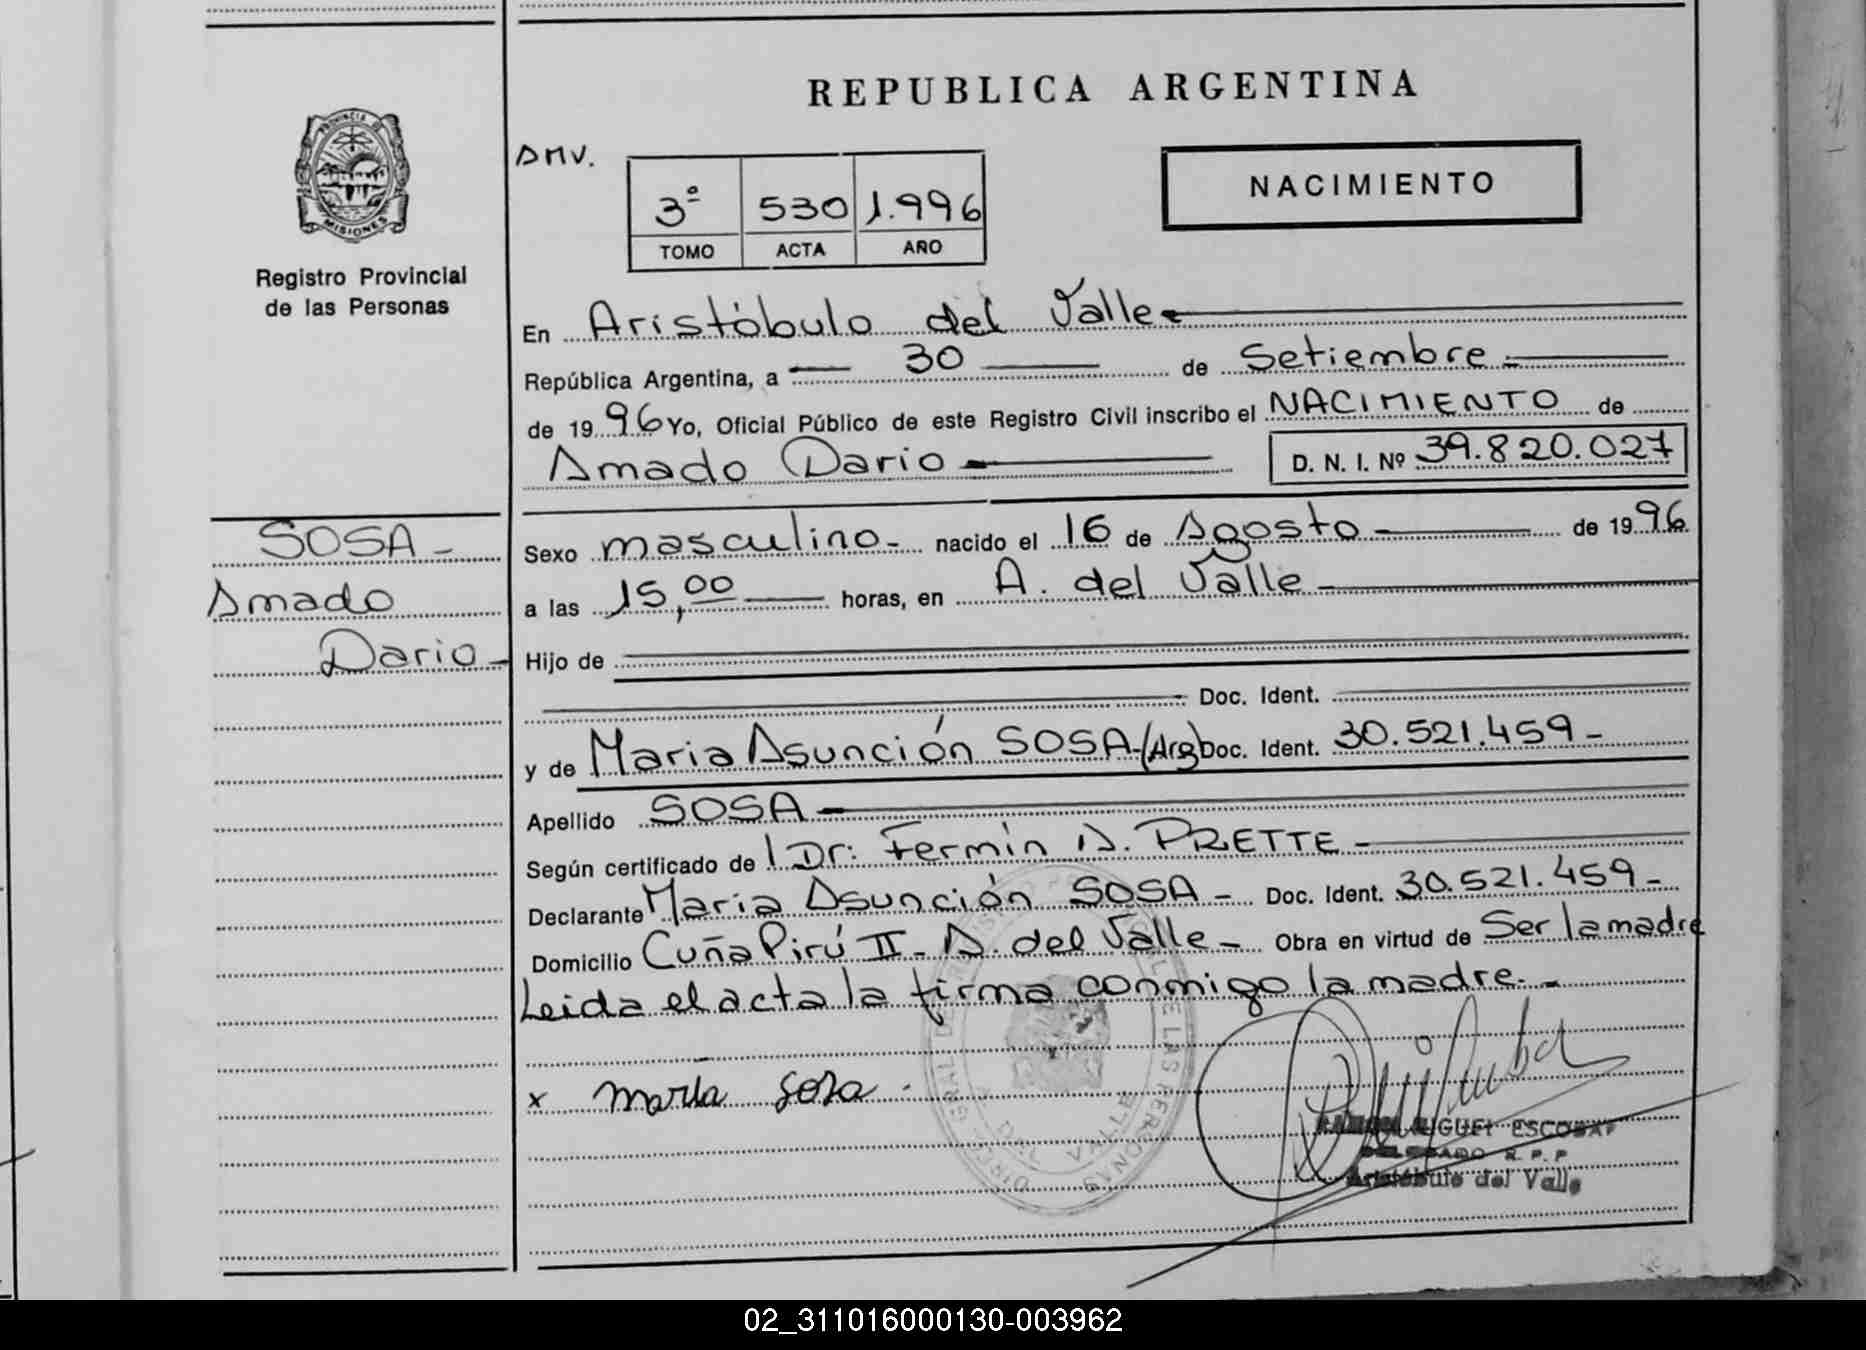 REPUBLICA ARGENTINA
PROVINCIA DE
MISIONES
Registro Provincial
de las Personas
AMV.
3º 530 1.996
TOMO ACTA AÑO
NACIMIENTO
En Aristóbulo del Valle
República Argentina, a 30 de Setiembre
de 1996 Yo, Oficial Público de este Registro Civil inscribo el NACIMIENTO de
Amado Dario D. N. I. Nº 39.820.027
SOSA
Amado
Dario
Sexo masculino nacido el 16 de Agosto de 1996
a las 15,00 horas, en A. del Valle
Hijo de
Doc. Ident.
y de Maria Asunción SOSA (Arg) Doc. Ident. 30.521.459
Apellido SOSA
Según certificado de Dr. Fermín A. PRETTE
Declarante Maria Asunción SOSA Doc. Ident. 30.521.459
Domicilio Cuña Pirú II A. del Valle Obra en virtud de Ser la madre
Leida el acta la firma conmigo la madre.
x Maria Sosa
MIGUEL ESCOBAR
DELEGADO R. P. P
Aristóbulo del Valle
02_311016000130-003962